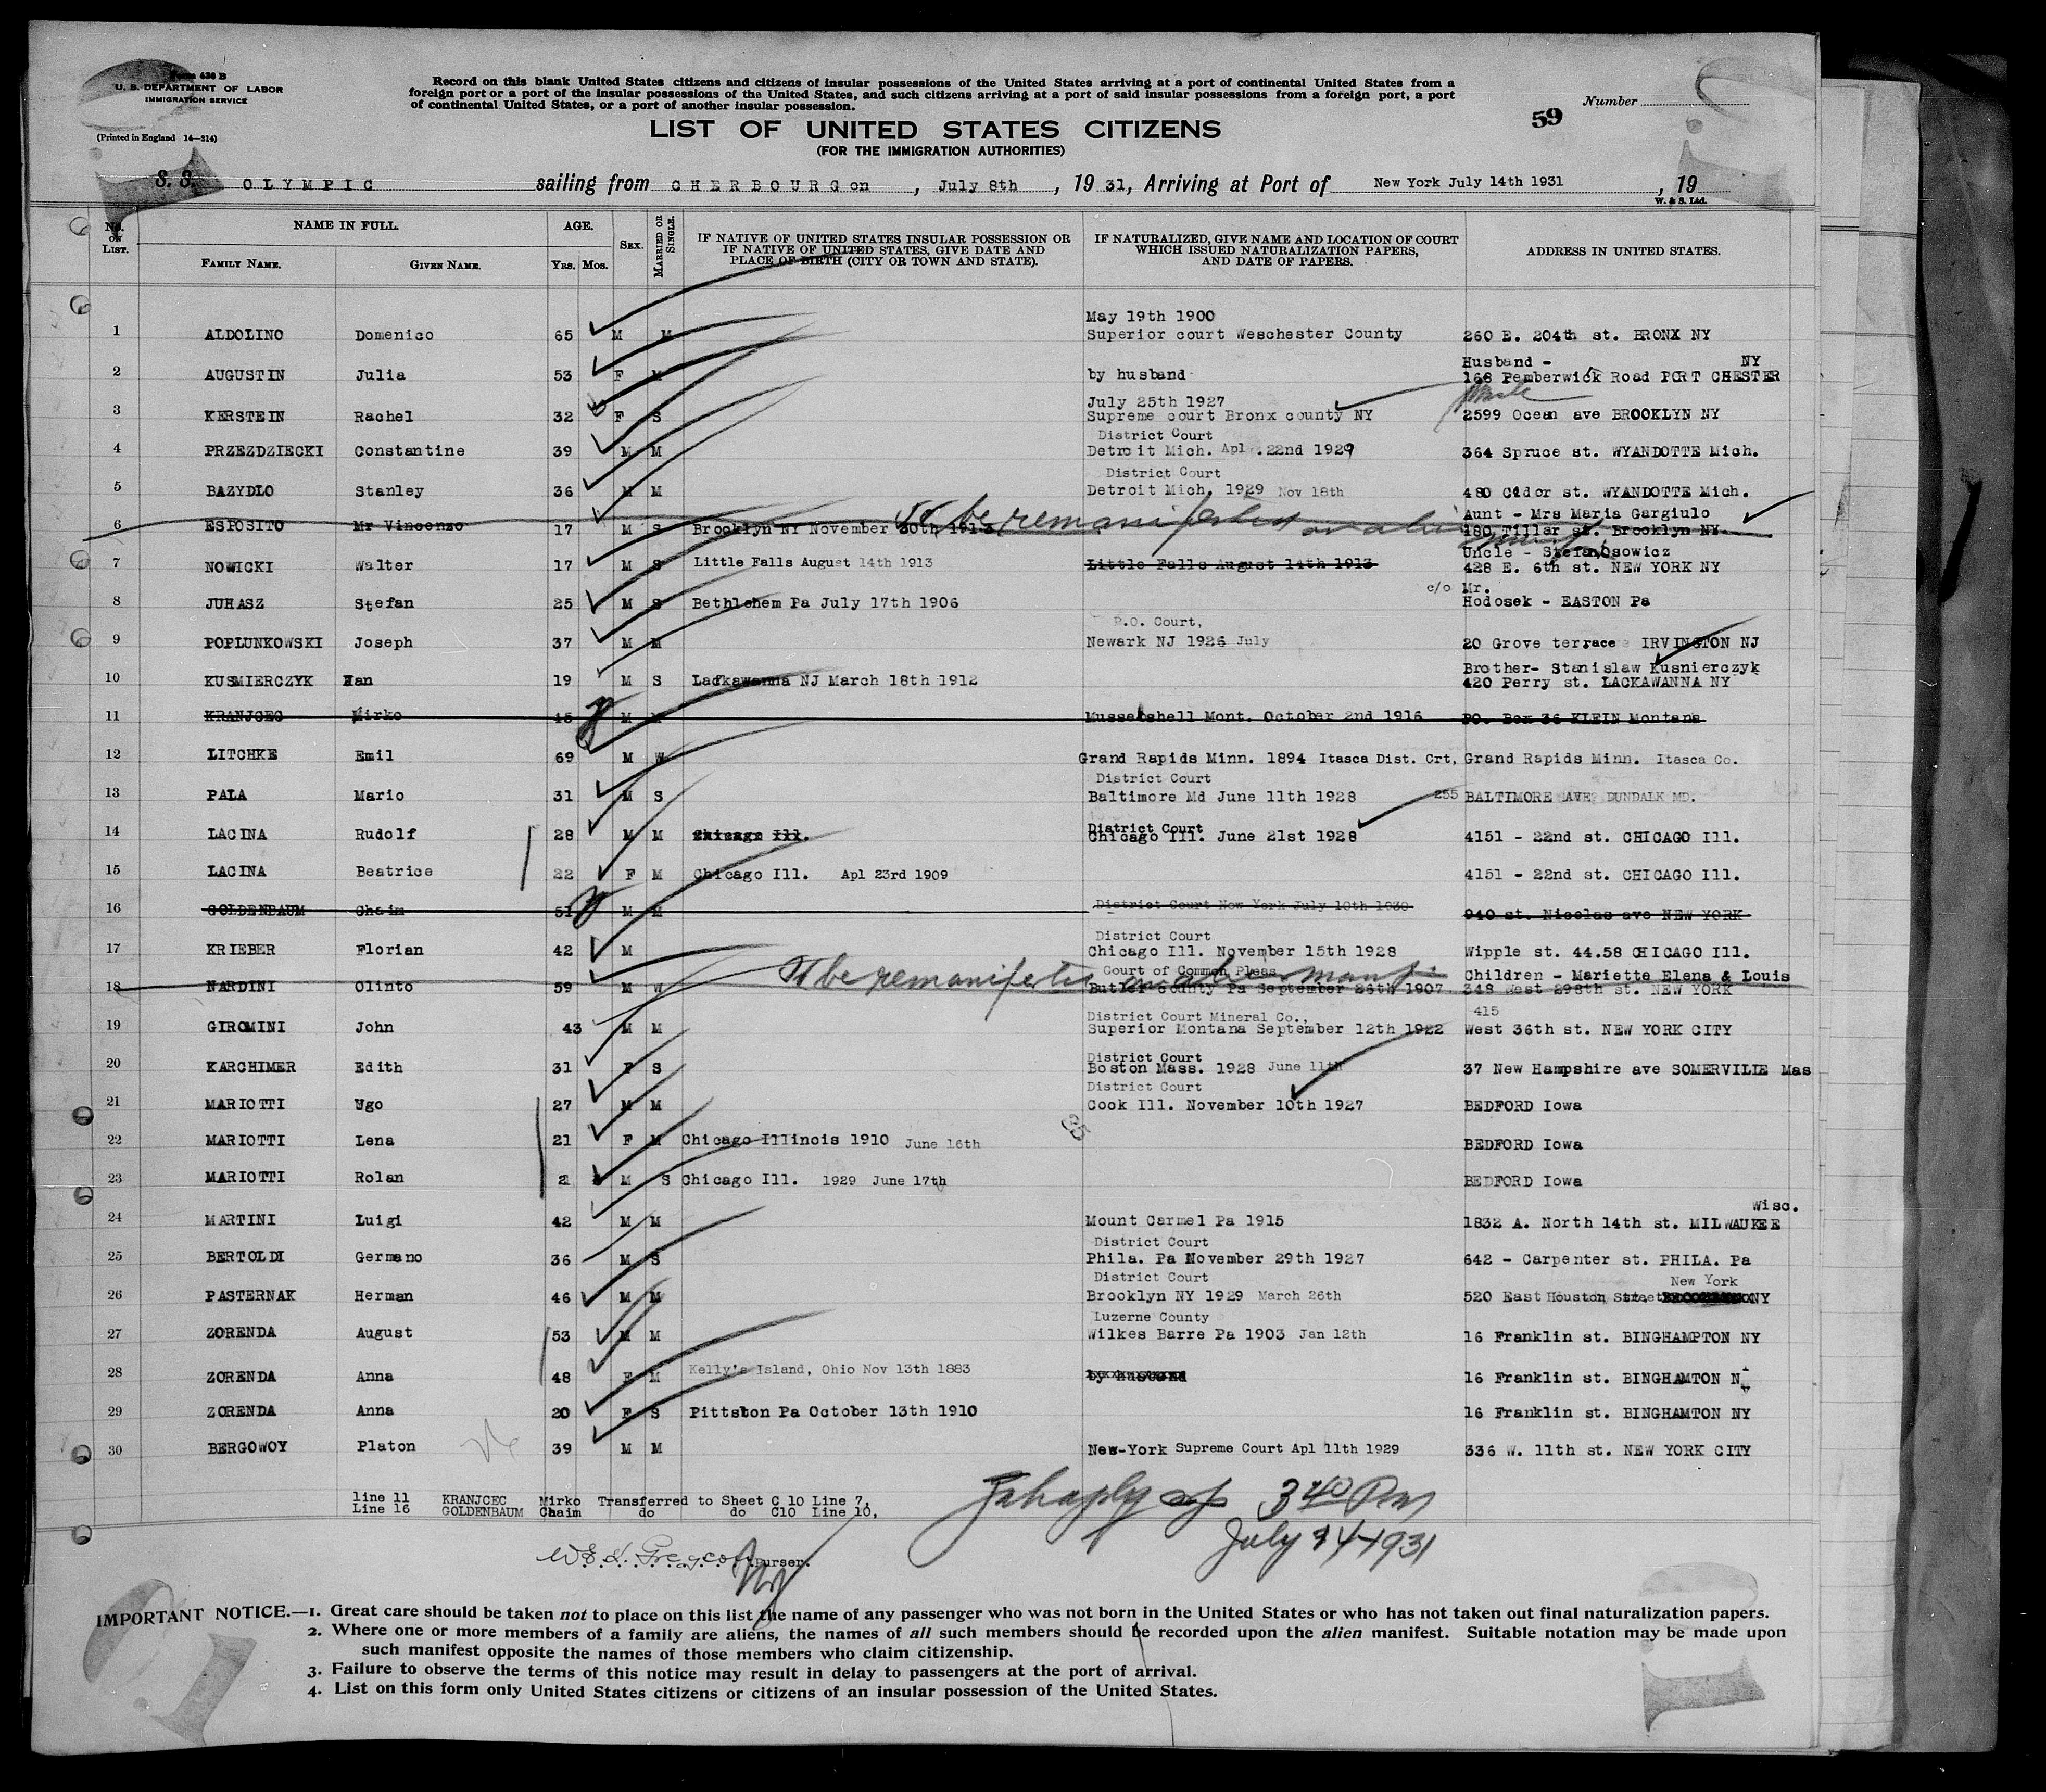 Form 630 B
U. S. DEPARTMENT OF LABOR
IMMIGRATION SERVICE
(Printed in England 14—214)
Record on this blank United States citizens and citizens of insular possessions of the United States arriving at a port of continental United States from a
foreign port or a port of the insular possessions of the United States, and such citizens arriving at a port of said insular possessions from a foreign port, a port
of continental United States, or a port of another insular possession.
59
Number
LIST OF UNITED STATES CITIZENS
(FOR THE IMMIGRATION AUTHORITIES)
S. S. OLYMPIC sailing from CHERBOURG on , July 8th , 19 31, Arriving at Port of New York July 14th 1931 , 19
W. & S. Ltd.
No. ON LIST. NAME IN FULL. FAMILY NAME. GIVEN NAME. AGE. YRS. MOS. SEX. MARRIED OR SINGLE. IF NATIVE OF UNITED STATES INSULAR POSSESSION OR IF NATIVE OF UNITED STATES, GIVE DATE AND PLACE OF BIRTH (CITY OR TOWN AND STATE). IF NATURALIZED, GIVE NAME AND LOCATION OF COURT WHICH ISSUED NATURALIZATION PAPERS, AND DATE OF PAPERS. ADDRESS IN UNITED STATES.
May 19th 1900
1 ALDOLINO Domenico 65 M M Superior court Weschester County 260 E. 204th st. BRONX NY
Husband - NY
2 AUGUSTIN Julia 53 F M by husband 168 Pemberwick Road PORT CHESTER
July 25th 1927
3 KERSTEIN Rachel 32 F S Supreme court Bronx county NY 2599 Ocean ave BROOKLYN NY
District Court
4 PRZEZDZIECKI Constantine 39 M M Detroit Mich. Apl. 22nd 1929 364 Spruce st. WYANDOTTE Mich.
District Court
5 BAZYDLO Stanley 36 M M Detroit Mich. 1929 Nov 18th 480 Cidor st. WYANDOTTE Mich.
To be remanifested on alien
Aunt - Mrs Maria Gargiulo
6 ESPOSITO Mr Vincenzo 17 M S Brooklyn NY November 30th 1913 180 Tillar st. Brooklyn NY
Uncle - Stefan Osowicz
7 NOWICKI Walter 17 M S Little Falls August 14th 1913 Little Falls August 14th 1913 428 E. 6th st. NEW YORK NY
c/o Mr.
8 JUHASZ Stefan 25 M S Bethlehem Pa July 17th 1906 Hodosek - EASTON Pa
P.O. Court,
9 POPLUNKOWSKI Joseph 37 M M Newark NJ 1926 July 20 Grove terrace IRVINGTON NJ
Brother- Stanislaw Kusnierczyk
10 KUSMIERCZYK Ian 19 M S Lackawanna NJ March 18th 1912 420 Perry st. LACKAWANNA NY
11 KRANJCEC Mirko 45 M M Musselshell Mont. October 2nd 1916 PO. Box 36 KLEIN Montana
12 LITCHKE Emil 69 M W Grand Rapids Minn. 1894 Itasca Dist. Crt, Grand Rapids Minn. Itasca Co.
District Court
13 PALA Mario 31 M S Baltimore Md June 11th 1928 255 BALTIMORE AVE DUNDALK MD.
District Court
14 LACINA Rudolf 28 M M Chicago Ill. Chicago Ill. June 21st 1928 4151 - 22nd st. CHICAGO Ill.
15 LACINA Beatrice 22 F M Chicago Ill. Apl 23rd 1909 4151 - 22nd st. CHICAGO Ill.
16 GOLDENBAUM Chaim 51 M M District Court New York July 10th 1930 940 st. Nicolas ave NEW YORK
District Court
17 KRIEBER Florian 42 M Chicago Ill. November 15th 1928 Wipple st. 44.58 CHICAGO Ill.
To be remanifested on alien manf.
Court of Common Pleas Children - Mariette Elena & Louis
18 NARDINI Olinto 59 M W Butler County Pa September 26th 1907 348 West 298th st. NEW YORK
District Court Mineral Co., 415
19 GIROMINI John 43 M M Superior Montana September 12th 1922 West 36th st. NEW YORK CITY
District Court
20 KARCHIMER Edith 31 F S Boston Mass. 1928 June 11th 37 New Hampshire ave SOMERVILIE Mas
District Court
21 MARIOTTI Ugo 27 M M Cook Ill. November 10th 1927 BEDFORD Iowa
22 MARIOTTI Lena 21 F M Chicago Illinois 1910 June 16th BEDFORD Iowa
23 MARIOTTI Rolan 2 M S Chicago Ill. 1929 June 17th BEDFORD Iowa
Wisc.
24 MARTINI Luigi 42 M M Mount Carmel Pa 1915 1832 A. North 14th st. MILWAUKEE
District Court
25 BERTOLDI Germano 36 M S Phila. Pa November 29th 1927 642 - Carpenter st. PHILA. Pa
District Court New York
26 PASTERNAK Herman 46 M M Brooklyn NY 1929 March 26th 520 East Houston Street NY
Luzerne County
27 ZORENDA August 53 M M Wilkes Barre Pa 1903 Jan 12th 16 Franklin st. BINGHAMPTON NY
28 ZORENDA Anna 48 F M Kelly's Island, Ohio Nov 13th 1883 by husband 16 Franklin st. BINGHAMTON N
29 ZORENDA Anna 20 F S Pittston Pa October 13th 1910 16 Franklin st. BINGHAMTON NY
30 BERGOWOY Platon 39 M M New-York Supreme Court Apl 11th 1929 336 W. 11th st. NEW YORK CITY
line 11 KRANJCEC Mirko Transferred to Sheet C 10 Line 7,
Line 16 GOLDENBAUM Chaim do do C10 Line 10,
3 40 Pm
July 14 1931
Purser.
IMPORTANT NOTICE.—1. Great care should be taken not to place on this list the name of any passenger who was not born in the United States or who has not taken out final naturalization papers.
2. Where one or more members of a family are aliens, the names of all such members should be recorded upon the alien manifest. Suitable notation may be made upon
such manifest opposite the names of those members who claim citizenship.
3. Failure to observe the terms of this notice may result in delay to passengers at the port of arrival.
4. List on this form only United States citizens or citizens of an insular possession of the United States.